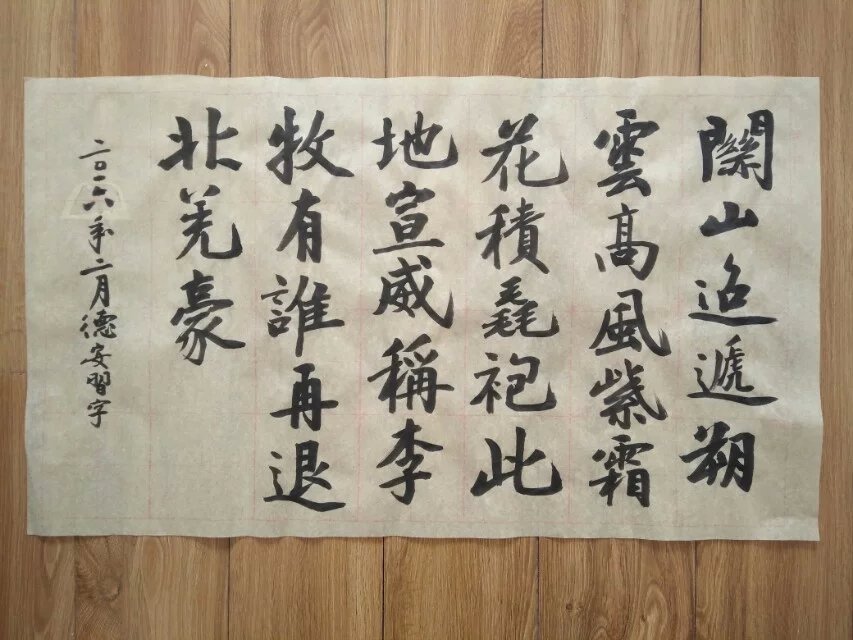 關山迢遞朔
雲髙風紫霜
花積毳袍此
地宣威稱李
牧有誰再退
北羌豪
二〇一六年六月德安習字